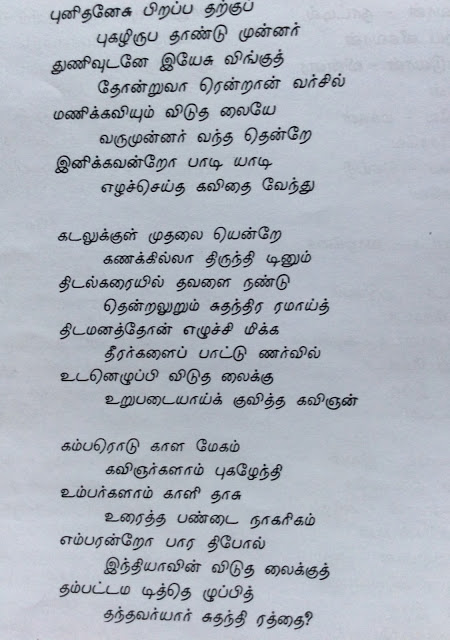 புனிதனேசு பிறப்ப தற்குப்
புகழிருப தாண்டு முன்னர்
துணிவுடனே இயேசு விங்குத்
தோன்றுவா ரென்றான் வர்சில்
மணிக்கவியும் விடுத லையே
வருமுன்னர் வந்த தென்றே
இனிக்கவன்றோ பாடி யாடி
எழச்செய்த கவிதை வேந்து
கடலுக்குள் முதலை யென்றே
கணக்கில்லா திருந்தி டினும்
திடல்கரையில் தவளை நண்டு
தென்றலுறும் சுதந்திர ரமாய்த்
திடமனத்தோன் எழுச்சி மிக்க
தீரர்களைப் பாட்டு ணர்வில்
உடனெழுப்பி விடுத லைக்கு
உறுபடையாய்க் குவித்த கவிஞன்
கம்பரொடு காள மேகம்
கவிஞர்களாம் புகழேந்தி
உம்பர்களாம் காளி தாசு
உரைத்த பண்டை நாகரிகம்
எம்பரன்றோ பார திபோல்
இந்தியாவின் விடுத லைக்குத்
தம்பட்டம டித்தெ ழுப்பித்
தந்தவர்யார் சுதந்தி ரத்தை?